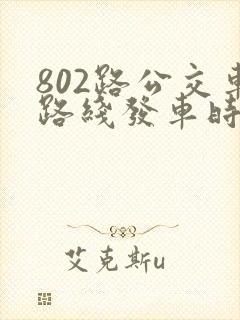 802路公交車
路綫發車時
艾克斯u